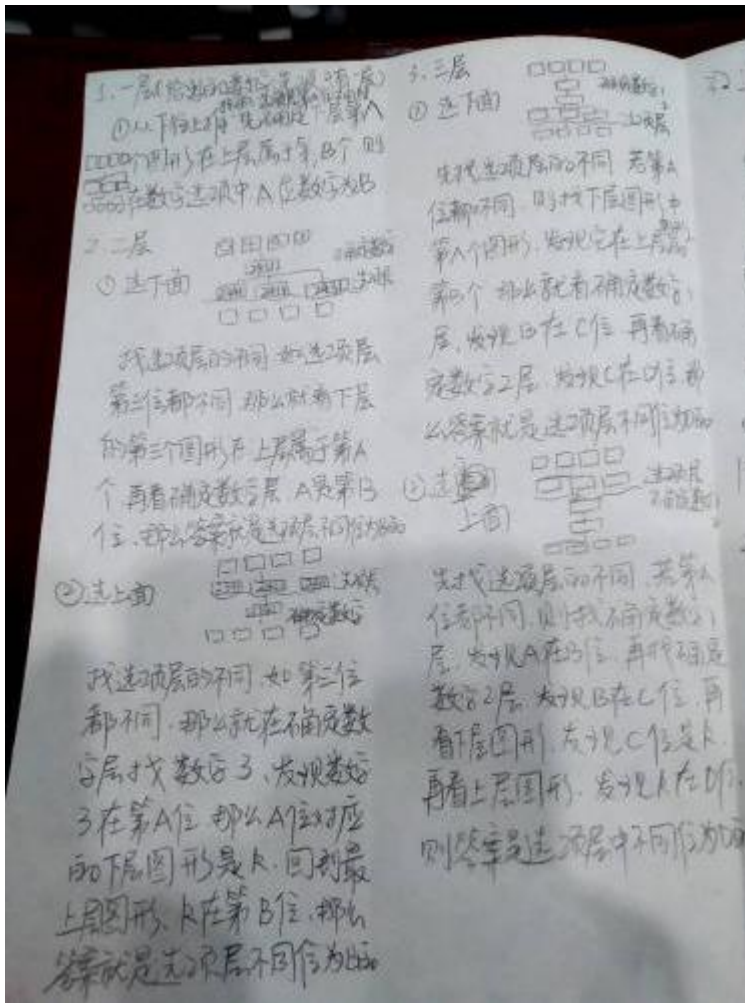 1. 一层
①从下往上
个图形在上层属于第B个 则
在数字选项中A位数字为B
2. 二层
① 选下面
找选项层的不同 如选项层
第三位都不同 那么就看下层
的第三个图形在上层属于第A
个 再看不确定数字层, A是第B
位, 那么答案就是选项层不同位为B的
② 选上面
不确定数字
找选项层的不同 如第三位
都不同, 那么就在不确定数
字层找数字3, 发现数字
3在第A位 那么A位对应
的下层图形是K. 回到最
上层图形, K在第B位, 那么
答案就是选项层不同位为B的
3. 三层
① 选下面
选项层
先找选项层的不同 若第A
位都不同, 则找下层图形中
第A个图形, 发现它在上层
第B个 那么就看不确定数字1
层, 发现B在C位 再看不确
定数字2层 发现C在D位, 那
么答案就是选项层不同位为D的
② 选
上面
选项层
不确定数字
先找选项层的不同, 若第A
位都不同, 则找不确定数字1
层, 发现A在B位, 再找不确定
数字2层 发现B在C位, 再
看下层图形, 发现C位是K,
再看上层图形, 发现K在D位,
则答案是选项层中不同位为D的